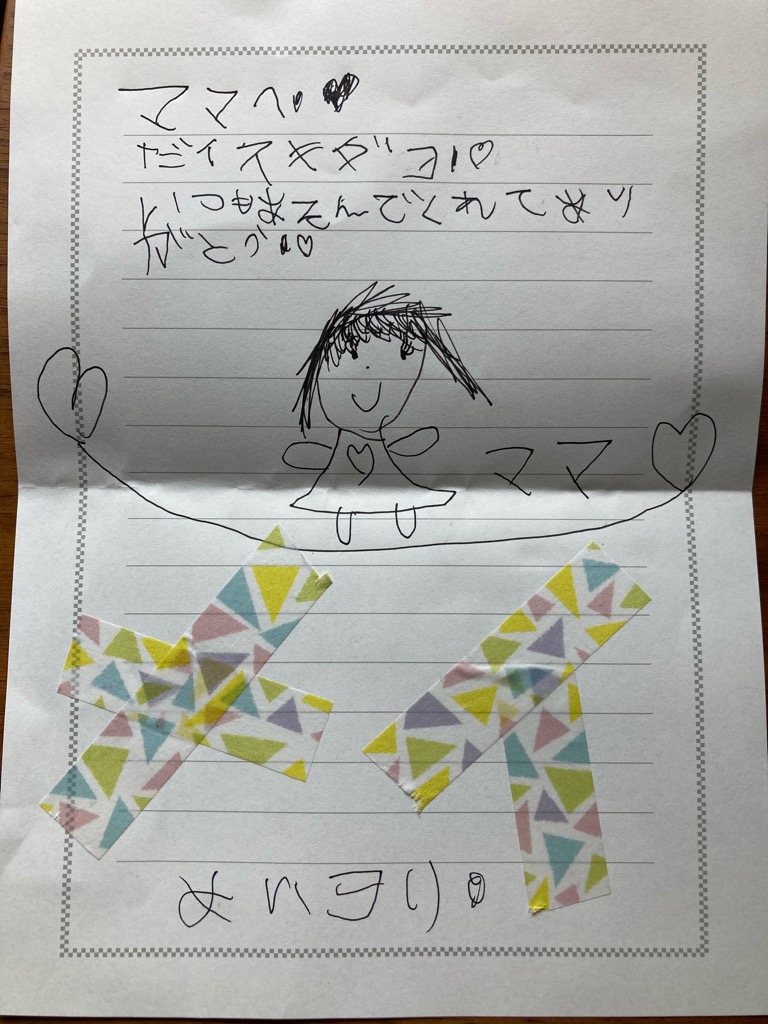 ママへ♥
だイスキダヨ!♡
いつもあそんでくれてあり
がとう!♡
ママ
メイ
めいヨリ